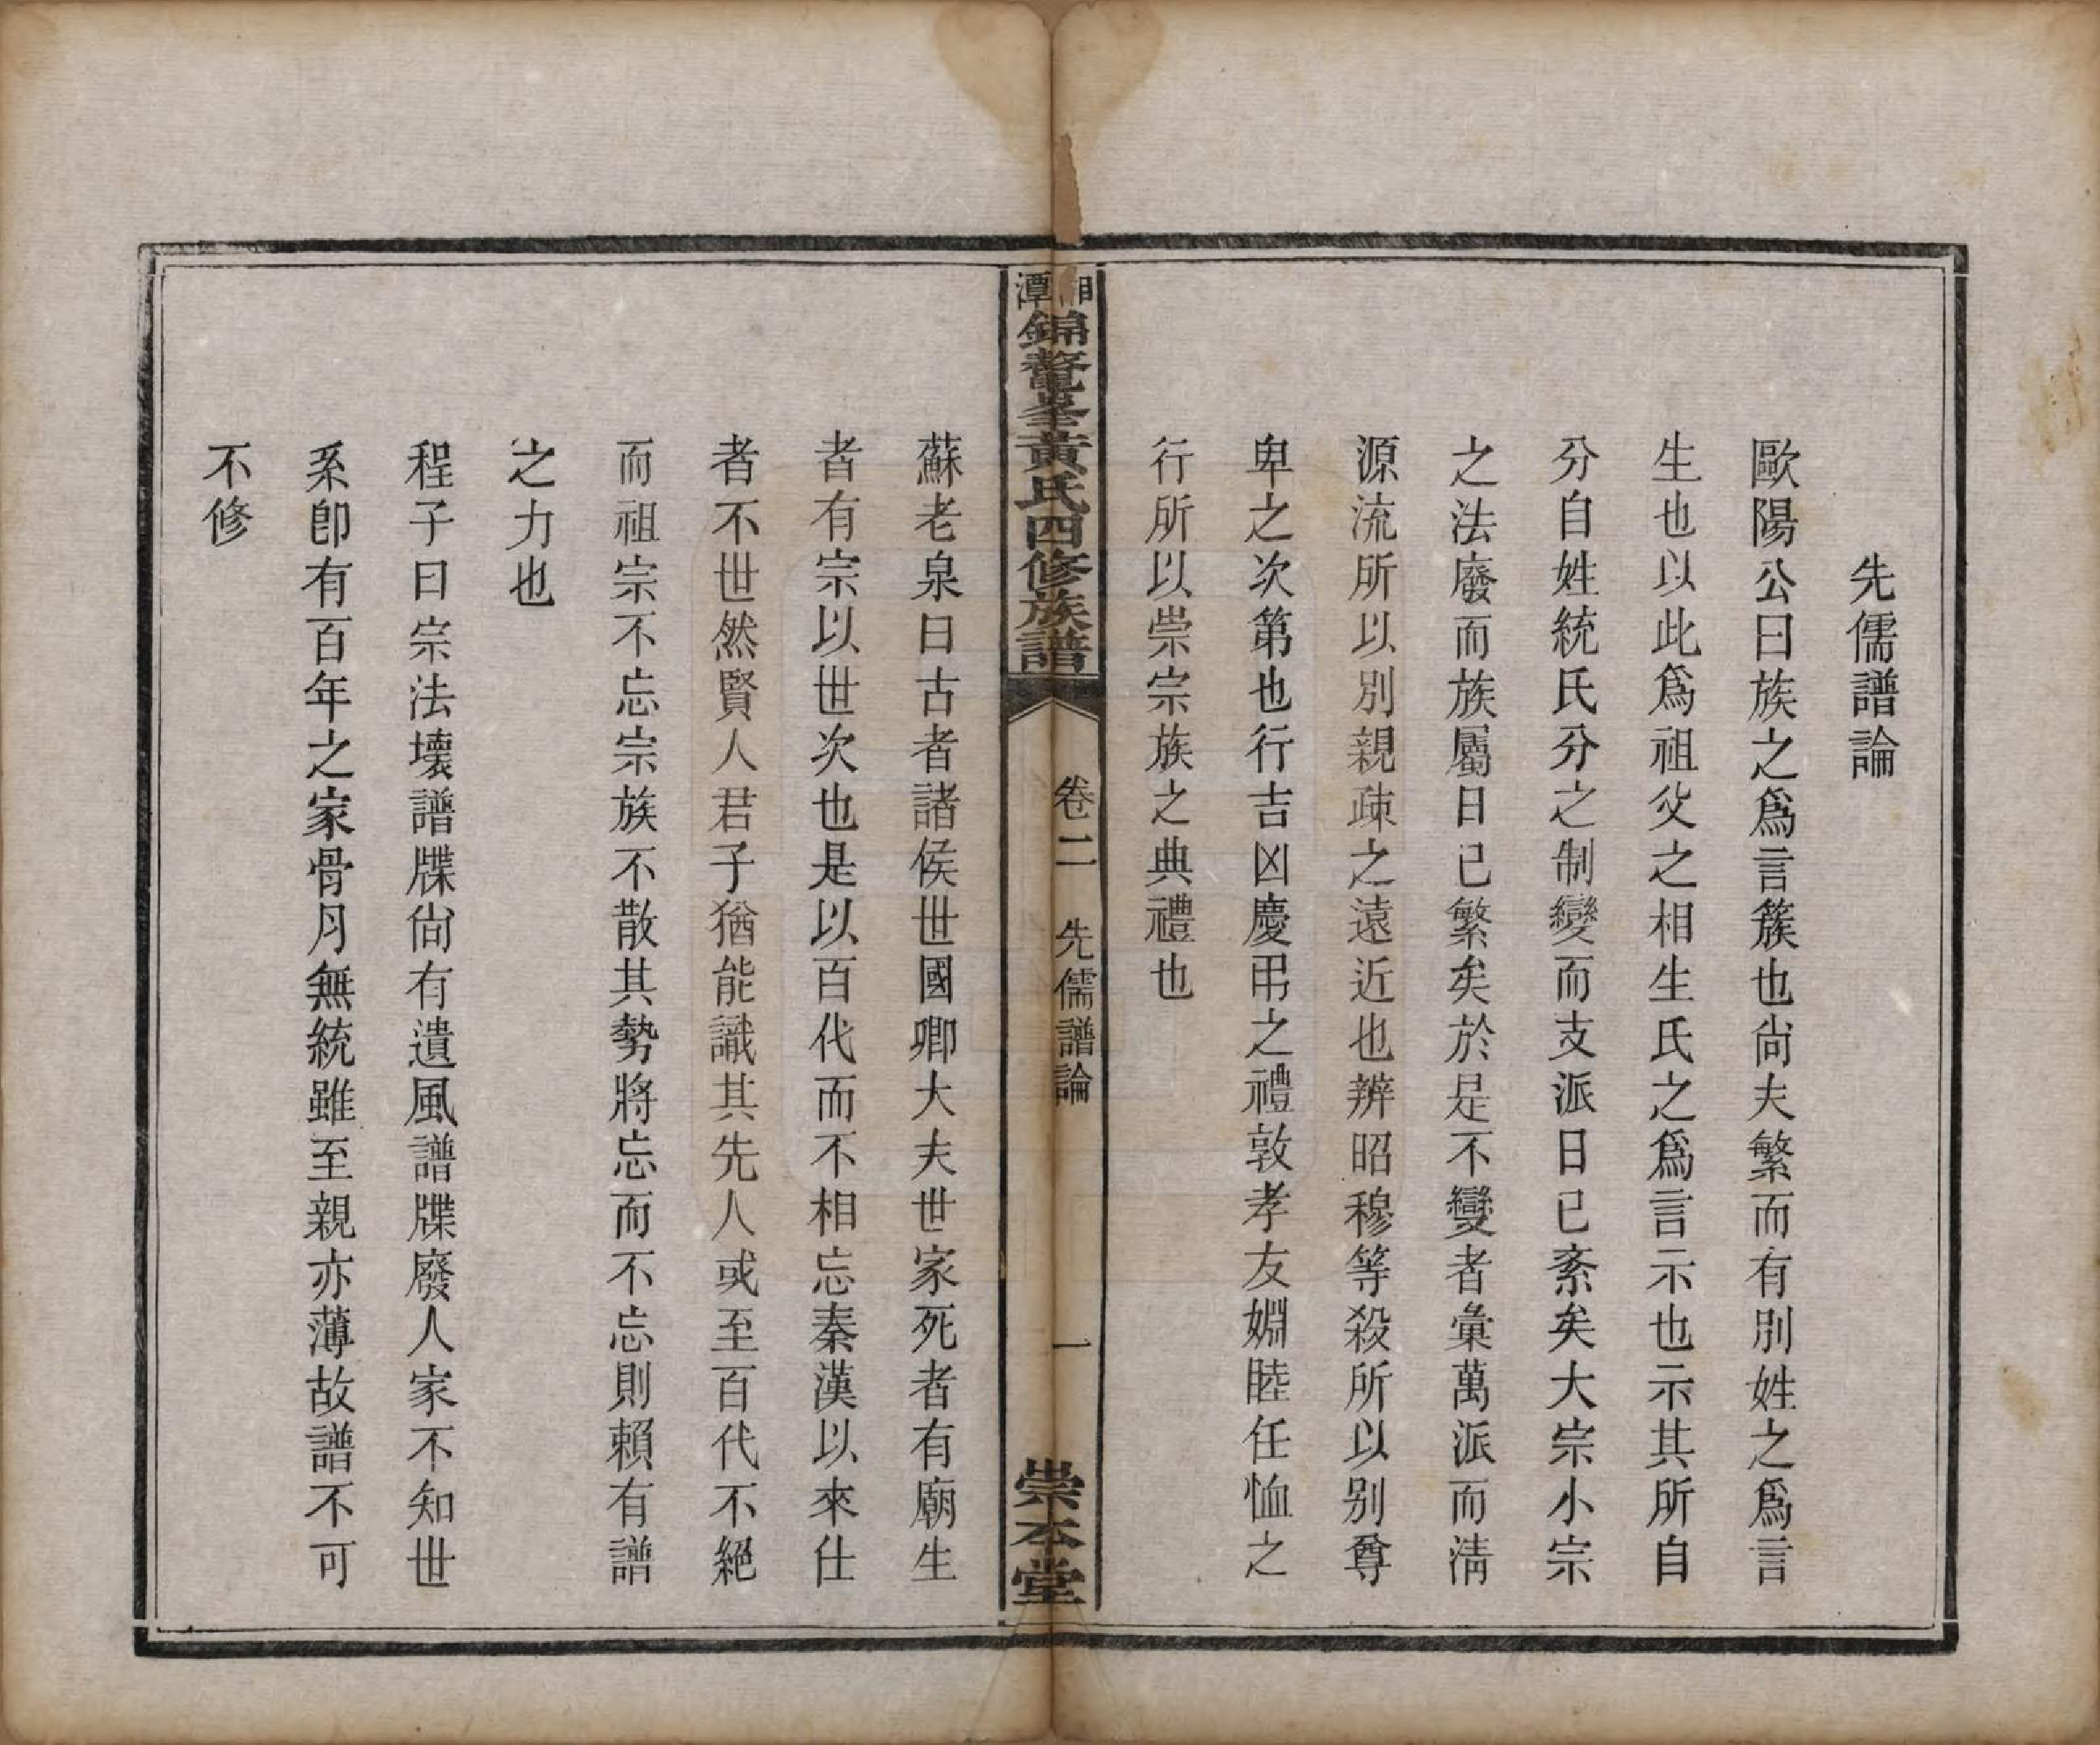 先儒譜論
歐陽公曰族之爲言簇也尙夫繁而有別姓之爲言
生也以此爲祖父之相生氏之爲言示也示其所自
分自姓統氏分之制變而支派日已紊矣大宗小宗
之法廢而族屬日已繁矣於是不變者彙萬派而淸
源流所以別親疎之遠近也辨昭穆等殺所以别尊
卑之次第也行吉凶慶弔之禮敦孝友婣睦任恤之
行所以崇宗族之典禮也
湘潭錦鰲峯黃氏四修族譜
卷二
先儒譜論
一
崇本堂
蘇老泉曰古者諸侯世國卿大夫世家死者有廟生
者有宗以世次也是以百代而不相忘秦漢以來仕
者不世然賢人君子猶能識其先人或至百代不絕
而祖宗不忘宗族不散其勢將忘而不忘則賴有譜
之力也
程子曰宗法壞譜牒尙有遺風譜牒廢人家不知世
系卽有百年之家骨月無統雖至親亦薄故譜不可
不修